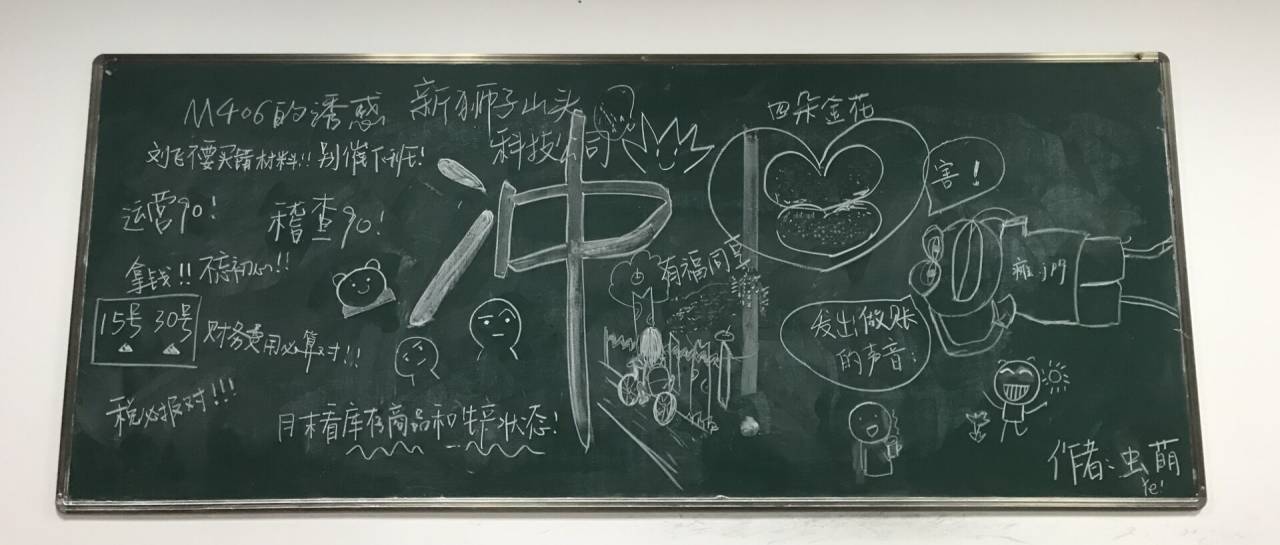 M406的诱惑
新狮子山头
科技公司
四朵金花
刘飞不要买错材料!! 别催下班!
冲!
害!
运营90!
稽查90!
拿钱!! 不忘初心!!
有福同享
15号 30号
财务费用必算对!!
发出做账
的声音:
税必报对!!!
月末看库存商品和生产状态!
作者:虫萌
Ye!